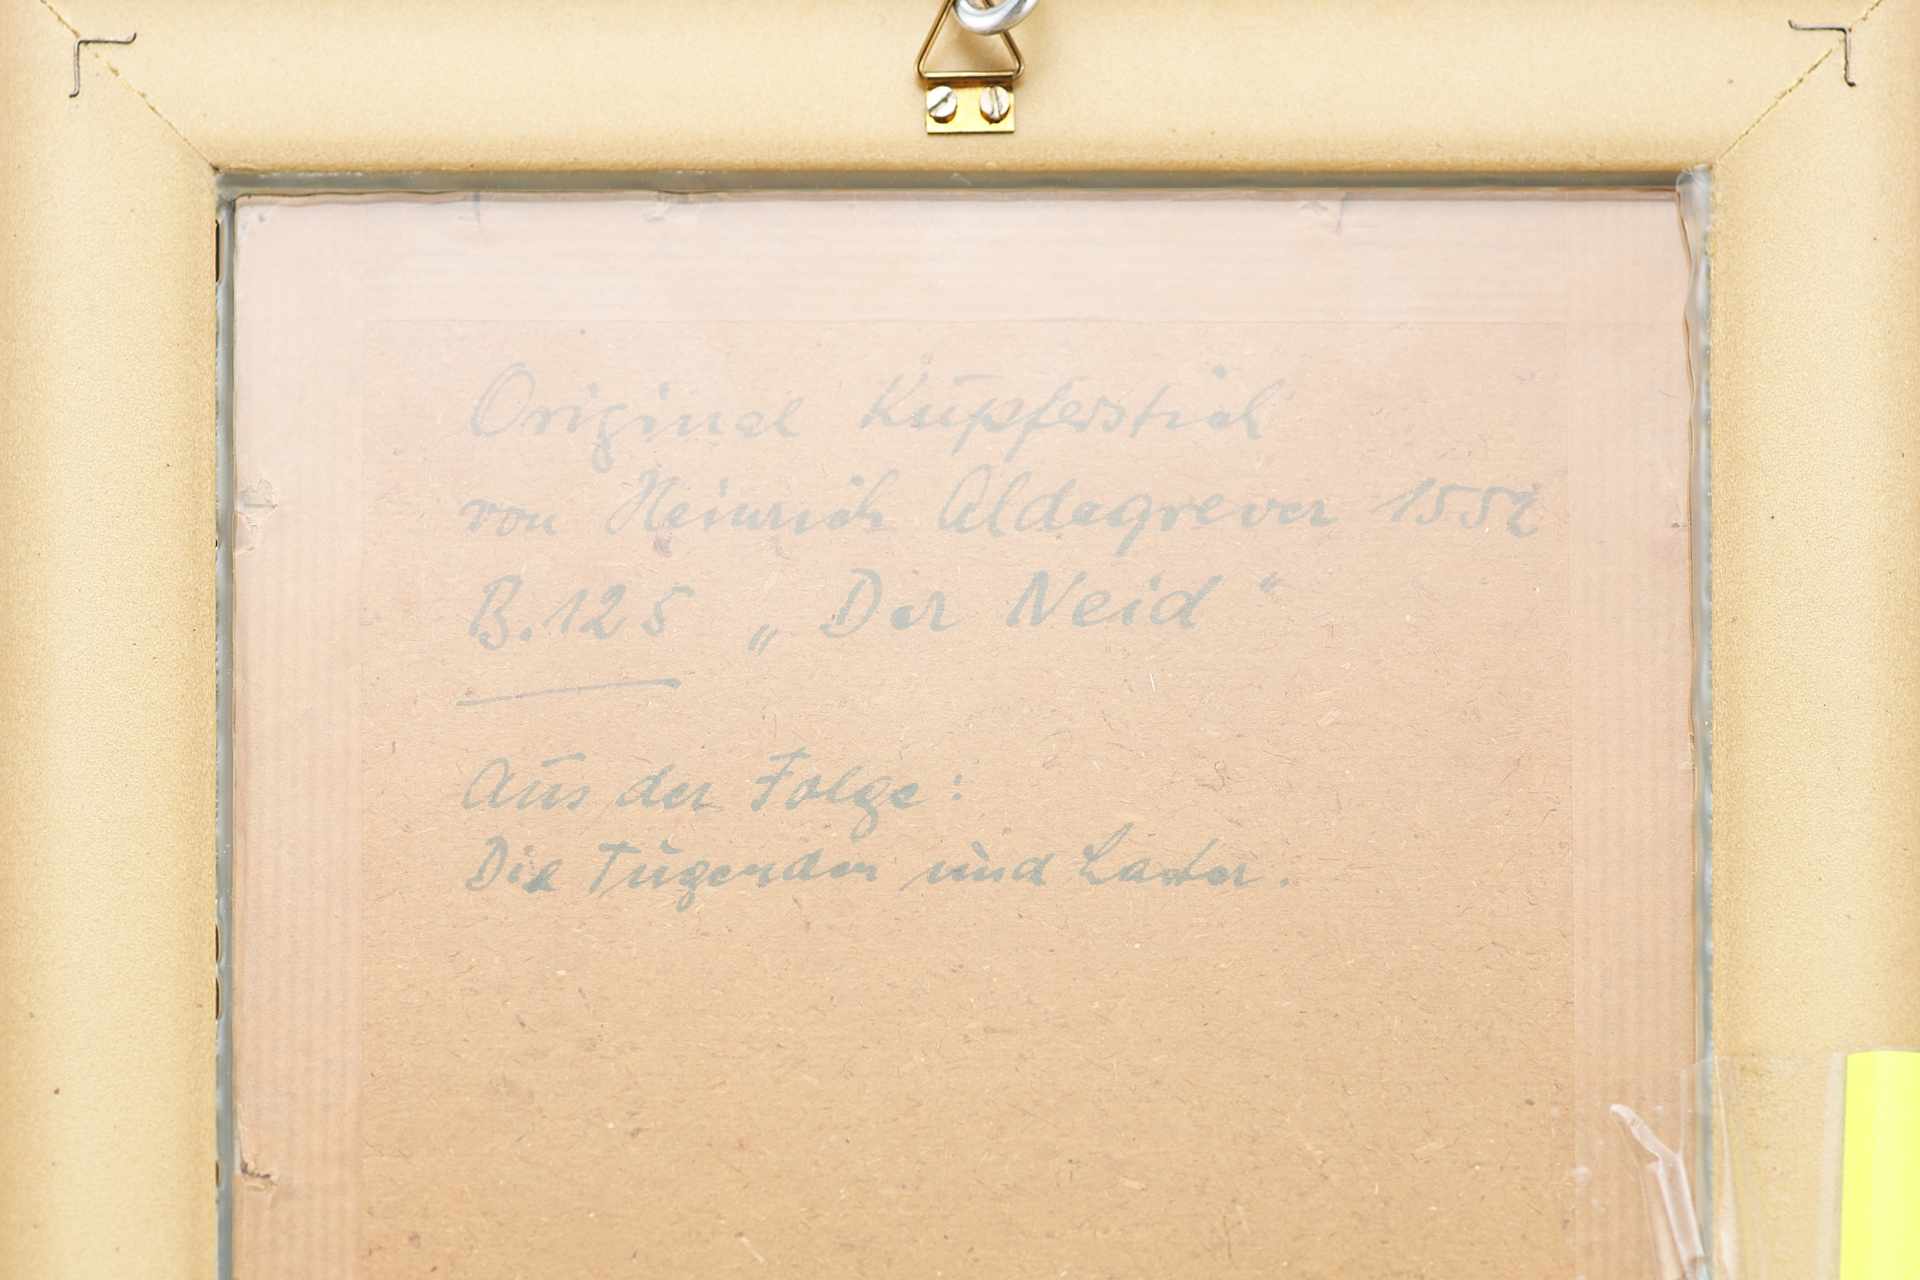 Original Kupferstich
von Heinrich Aldegrever 1552
B.125 „Der Neid"
Aus der Folge:
Die Tugenden und Laster.